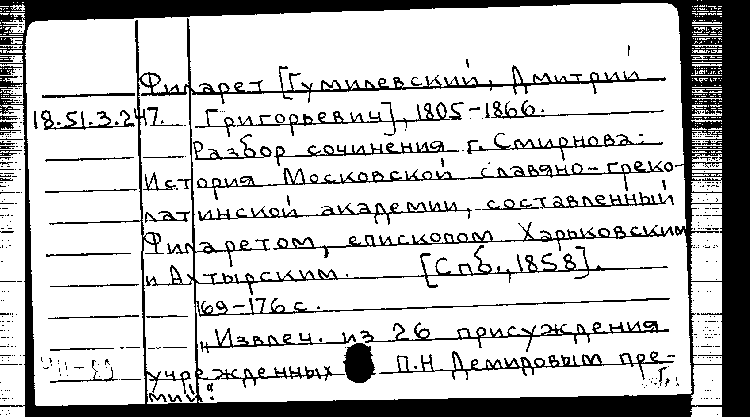 Филарет [Гумилевский, Дмитрий
18.51.3.247. Григорьевич], 1805-1866.
Разбор сочинения г. Смирнова:
История Московской славяно-греко-
латинской академии, составленный
Филаретом, епископом Харьковским
и Ахтырским. [Спб., 1858].
169-176 с.
"Извлеч. из 26 присуждения
учрежденных П.Н Демидовым пре-
мий"